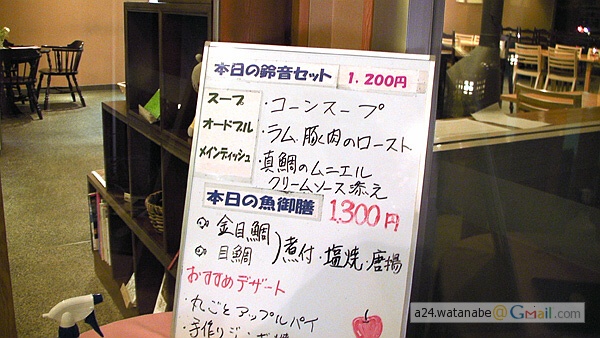 本日の鈴音セット 1.200円
スープ ・コーンスープ
オードブル ・ラム、豚肉のロースト
メインディッシュ ・真鯛のムニエル
クリームソース添え
本日の魚御膳 1,300円
金目鯛
目鯛 煮付・塩焼・唐揚
おすすめデザート
・丸ごとアップルパイ
・手作り
a24.watanabe@Gmail.com